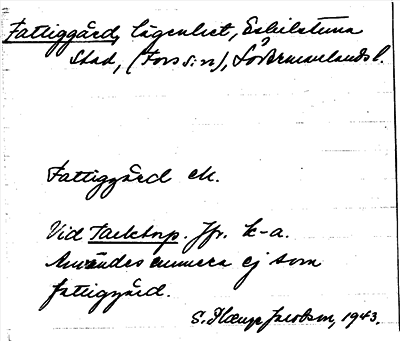 Fattiggård, lägenhet, Eskilstuna
stad, (Fors s:n), Södermanlands l.
Fattiggård ek.
Vid Faektorp. Jfr. k-a.
Användes numera ej som
fattiggård.
S. Jacobson, 1943.